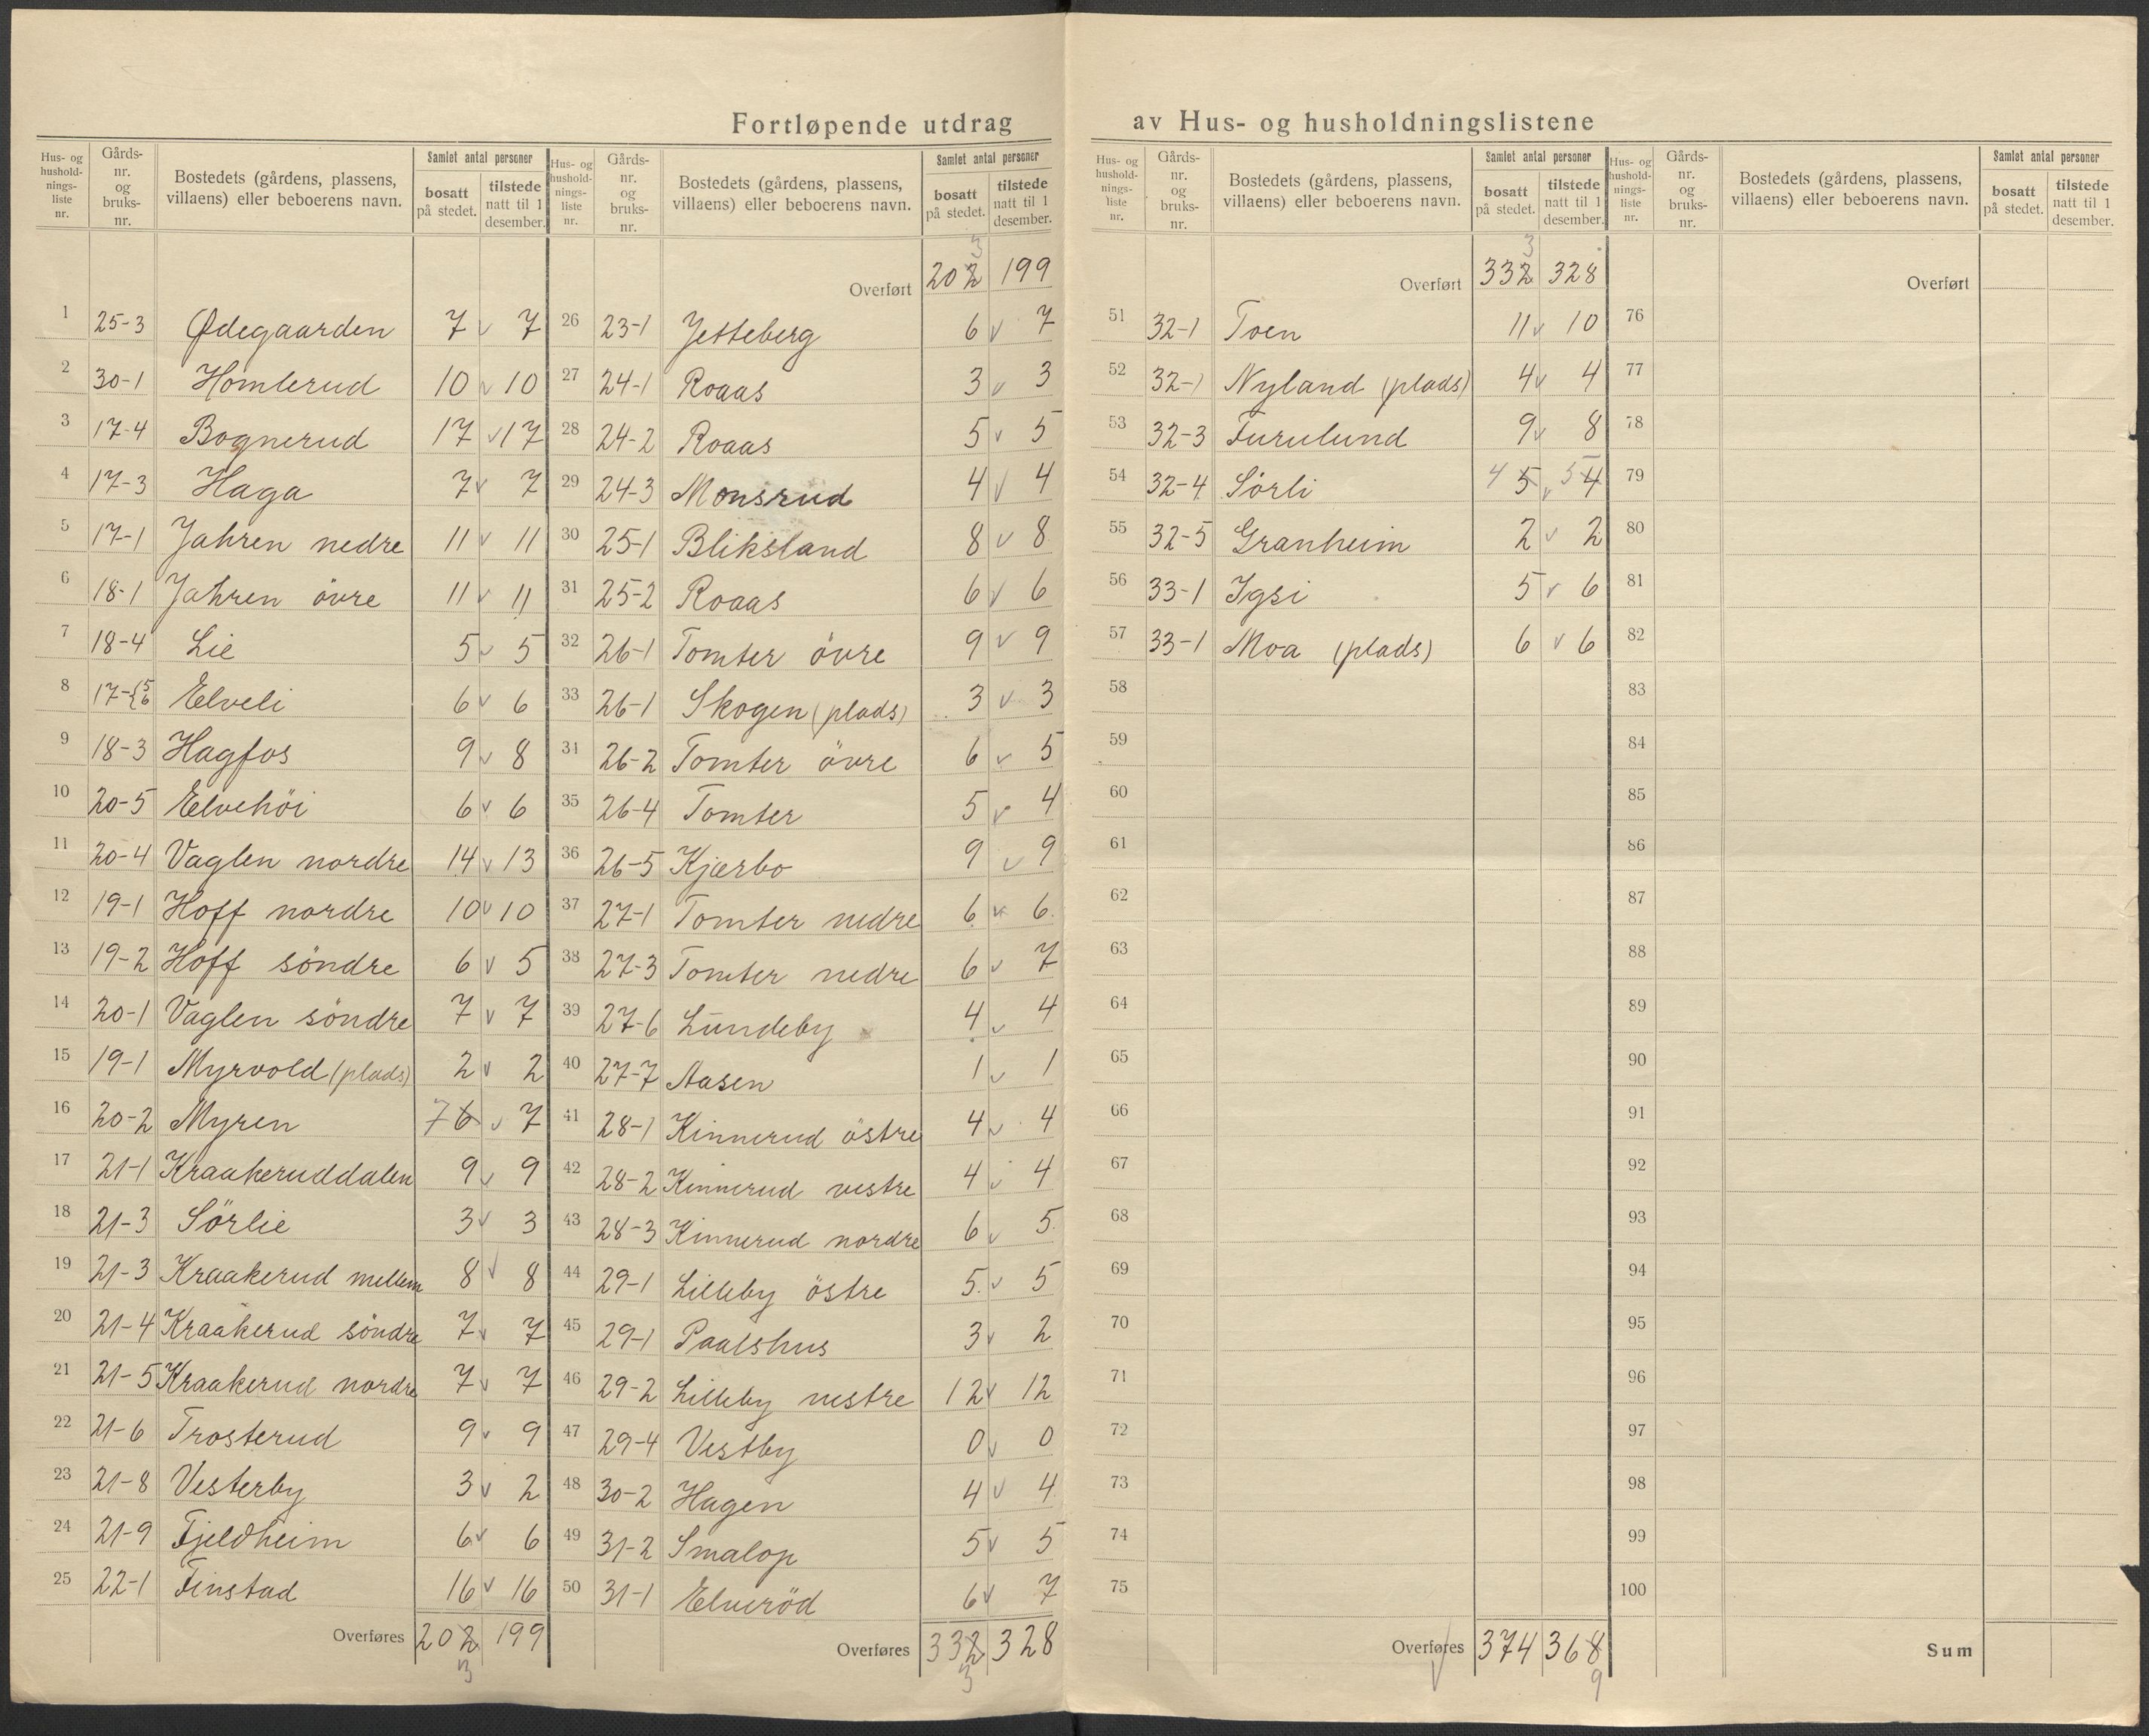 Fortløpende utdrag av Hus- og husholdningslistene
Hus- og husholdnings-liste nr. Gårds-nr. og bruks-nr. Bostedets (gårdens, plassens, villaens) eller beboerens navn. Samlet antal personer bosatt på stedet. tilstede natt til 1 desember.
1 25-3 Ødegaarden 7 v 7
2 30-1 Homlerud 10 v 10
3 17-4 Bognerud 17 v 17
4 17-3 Haga 7 v 7
5 17-1 Jahren nedre 11 v 11
6 18-1 Jahren övre 11 v 11
7 18-4 Lie 5 v 5
8 17-{5 6 Elveli 6 v 6
9 18-3 Hagfos 9 v 8
10 20-5 Elvehöi 6 v 6
11 20-4 Vaglen nordre 14 v 13
12 19-1 Hoff nordre 10 v 10
13 19-2 Hoff söndre 6 v 5
14 20-1 Vaglen söndre 7 v 7
15 19-1 Myrvold (plads) 2 v 2
16 20-2 Myren 7 6 v 7
17 21-1 Kraakeruddalen 9 v 9
18 21-3 Sörlie 3 v 3
19 21-3 Kraakerud mellem 8 v 8
20 21-4 Kraakerud söndre 7 v 7
21 21-5 Kraakerud nordre 7 v 7
22 21-6 Trosterud 9 v 9
23 21-8 Vesterby 3 v 2
24 21-9 Fjeldheim 6 v 6
25 22-1 Finstad 16 v 16
Overføres 202 199
3
Hus- og husholdnings-liste nr. Gårds-nr. og bruks-nr. Bostedets (gårdens, plassens, villaens) eller beboerens navn. Samlet antal personer bosatt på stedet. tilstede natt til 1 desember.
3
Overført 202 199
26 23-1 Jetteberg 6 v 7
27 24-1 Roaas 3 v 3
28 24-2 Roaas 5 v 5
29 24-3 Monsrud 4 v 4
30 25-1 Bliksland 8 v 8
31 25-2 Roaas 6 v 6
32 26-1 Tomter övre 9 v 9
33 26-1 Skogen (plads) 3 v 3
34 26-2 Tomter övre 6 v 5
35 26-4 Tomter 5 v 4
36 26-5 Kjærbo 9 v 9
37 27-1 Tomter nedre 6 v 6
38 27-3 Tomter nedre 6 v 7
39 27-6 Lundeby 4 v 4
40 27-7 Aasen 1 v 1
41 28-1 Kinnerud östre 4 v 4
42 28-2 Kinnerud vestre 4 v 4
43 28-3 Kinnerud nordre 6 v 5
44 29-1 Lilleby östre 5 v 5
45 29-1 Paalshus 3 v 2
46 29-2 Lilleby vestre 12 v 12
47 29-4 Vestby 0 v 0
48 30-2 Hagen 4 v 4
49 31-2 Smalop 5 v 5
50 31-1 Elveröd 6 v 7
Overføres 332 328
3
Hus- og husholdnings-liste nr. Gårds-nr. og bruks-nr. Bostedets (gårdens, plassens, villaens) eller beboerens navn. Samlet antal personer bosatt på stedet. tilstede natt til 1 desember.
3
Overført 332 328
51 32-1 Toen 11 v 10
52 32-1 Nyland (plads) 4 v 4
53 32-3 Furulund 9 v 8
54 32-4 Sörli 4 5 v 5 4
55 32-5 Granheim 2 v 2
56 33-1 Igsi 5 v 6
57 33-1 Moa (plads) 6 v 6
58
59
60
61
62
63
64
65
66
67
68
69
70
71
72
73
74
75
Overføres 374 368
v 9
Hus- og husholdnings-liste nr. Gårds-nr. og bruks-nr. Bostedets (gårdens, plassens, villaens) eller beboerens navn. Samlet antal personer bosatt på stedet. tilstede natt til 1 desember.
Overført
76
77
78
79
80
81
82
83
84
85
86
87
88
89
90
91
92
93
94
95
96
97
98
99
100
Sum